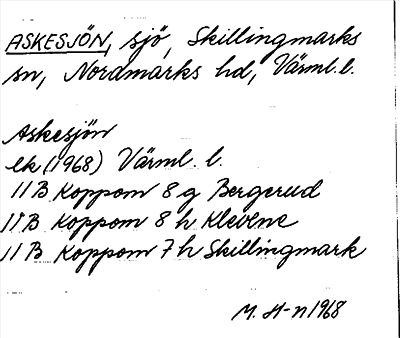 ASKESJÖN, sjö, Skillingmarks
sn, Nordmarks hd, Värml. l.
Askesjön
ek (1968) Värml. l.
11 B Koppom 8 g Bergerud
11 B Koppom 8 h Klevene
11 B Koppom 7 h Skillingmark
M. H-n 1968